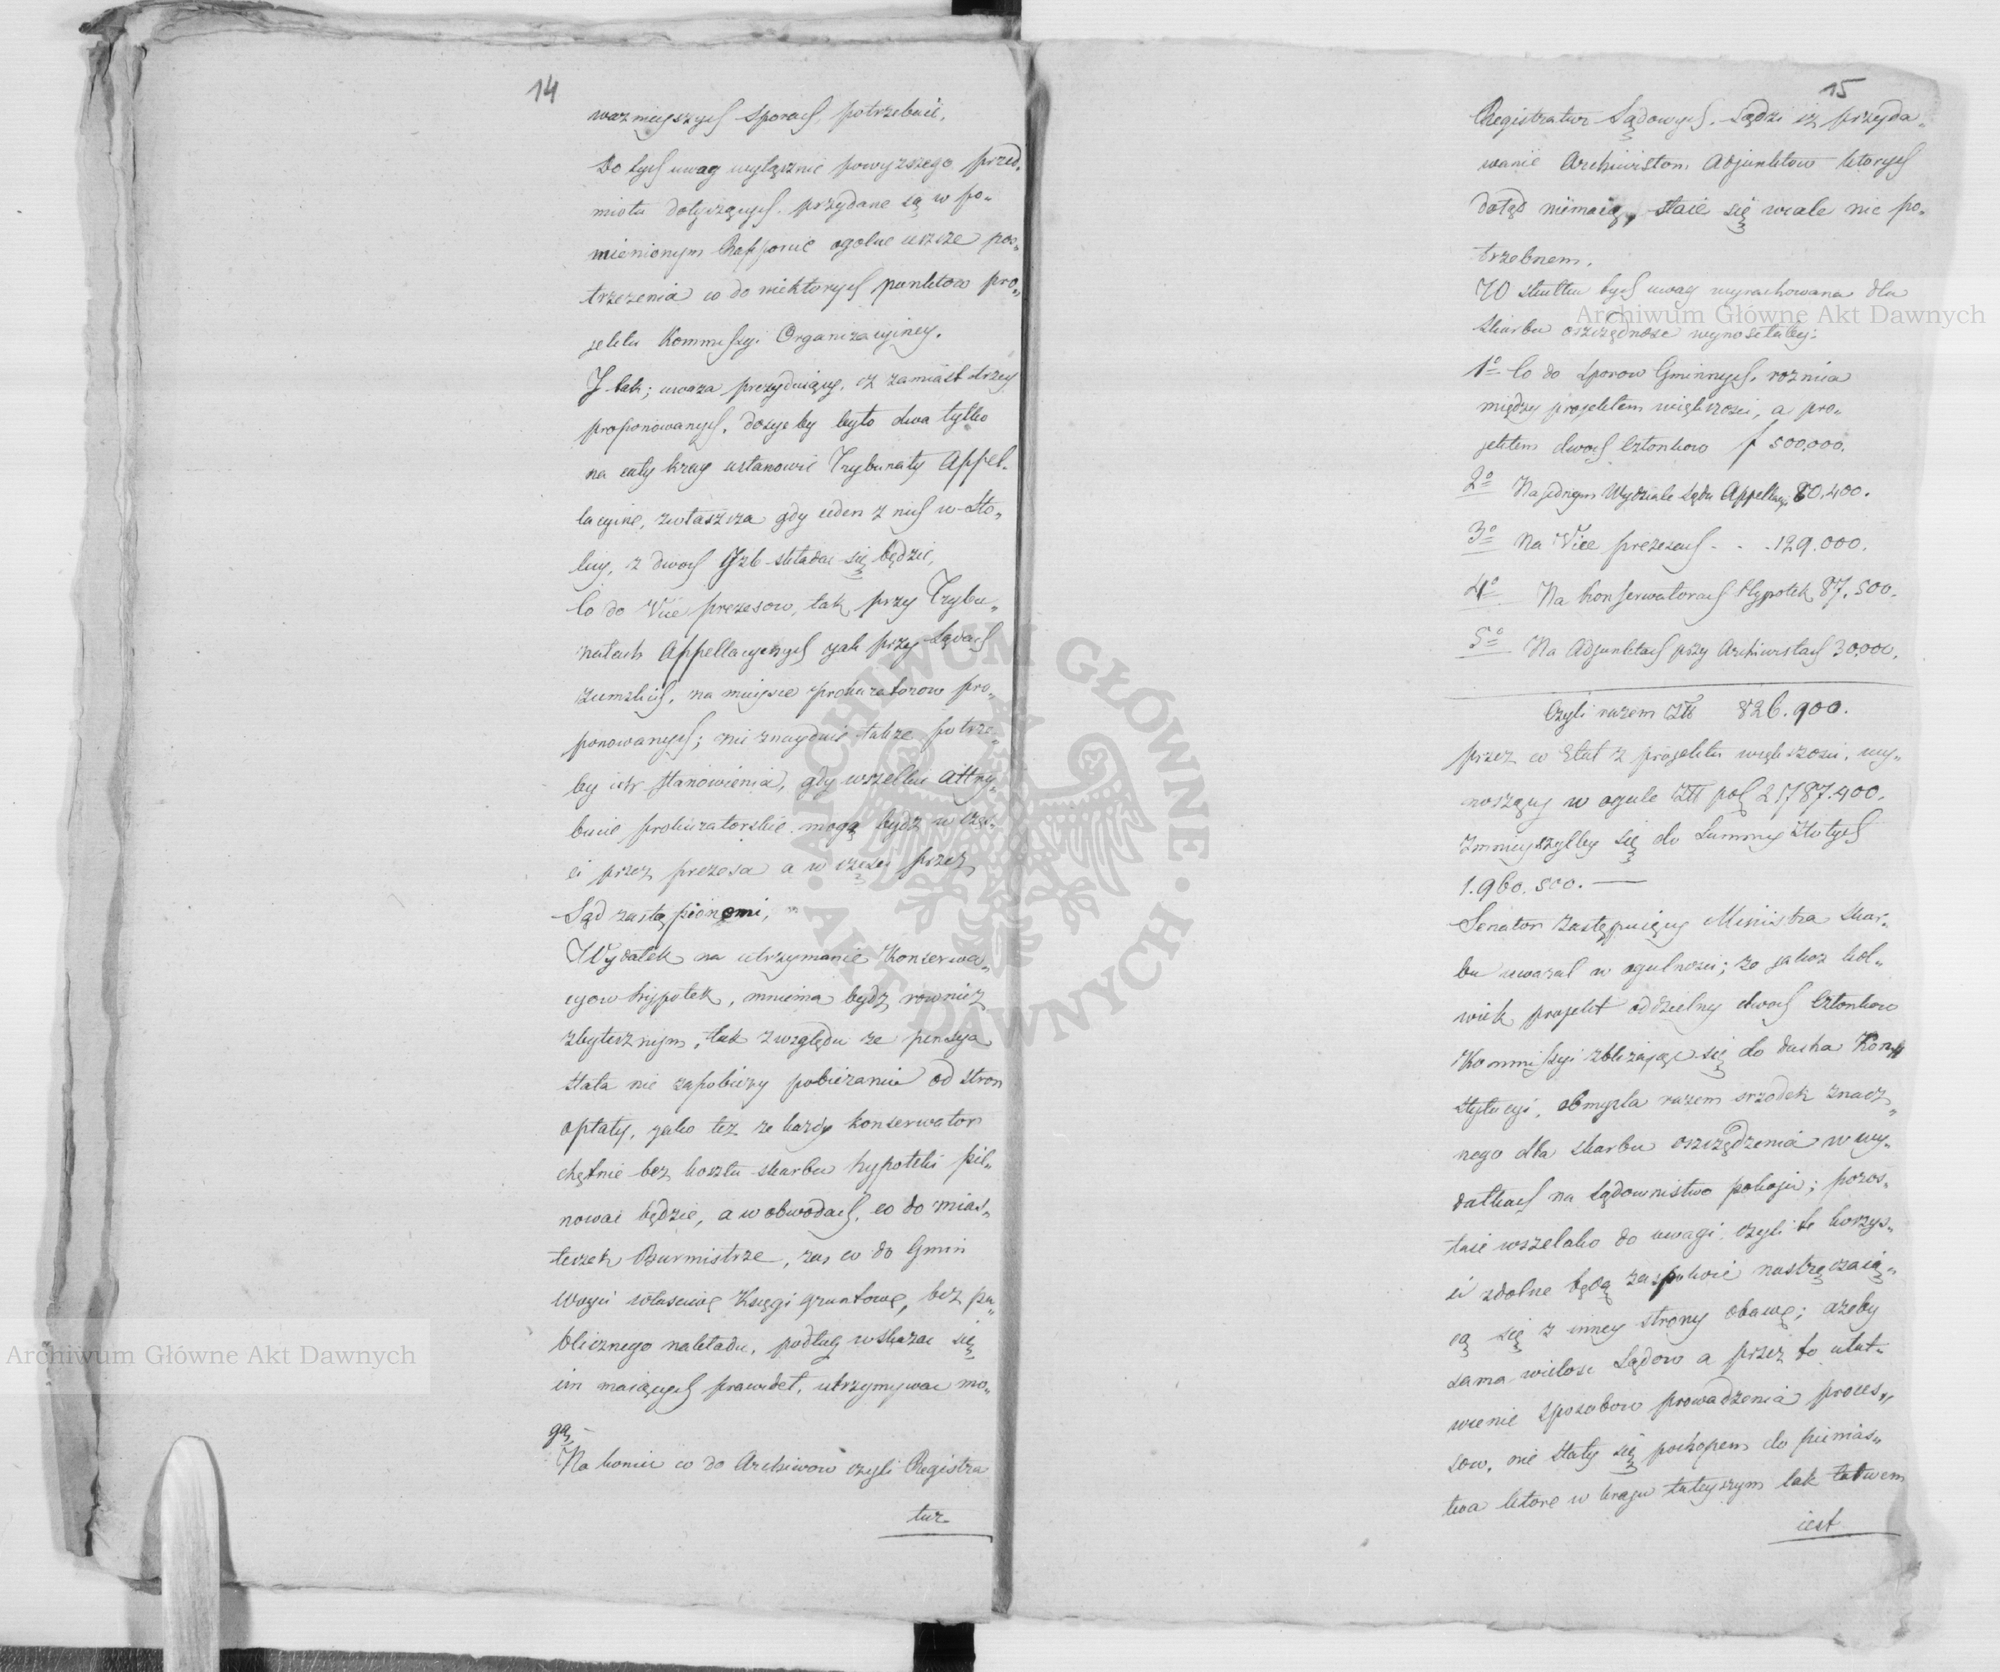 14
ważnieyszych sporach, potrzebnie.
Do tych uwag wyłącznie powyższego przed„
miotu dotyczących, przydane są w po„
mienionym Rapporcie ogolne ieszcze pos„
trzeżenia co do niektorych punktow pro„
jektu Kommissyi Organizacyiney.
I tak; uważa prezyduiący, iż zamiast trzech
proponowanych, dosyć by było dwa tylko
na cały kray ustanowić Trybunały Appel„
lacyine, zwłaszcza gdy ieden z nich w sto„
licy, z dwoch Izb składać się będzie,
Co do Vice prezesow, tak przy Trybu„
nałach Appellacyinych jak przy Sądach
ziemskich, na mieysce prokuratorow pro„
ponowanych; nie znayduie także potrze„
by ich stanowienia, gdy wszelkie attry„
bucie prokuratorskie mogą bydź w częś„
ci przez prezesa a w części przez
Sąd zastąpionemi,
Wydatek na utrzymanie Konserwa„
cyow hypotek, mniema bydź rownież
zbytecznym, tak z względu że pensya
stała nie zapobieży pobieraniu od stron
opłaty, jako też że każdy konserwator
chętnie bez kosztu skarbu hypoteki pil„
nować będzie, a w obwodach, co do mias„
teczek Burmistrze, zaś co do Gmin
Woyci właściwe Księgi gruntowe, bez pu„
blicznego nakładu, podług wskazać się
im maiących prawideł, utrzymywać mo„
gą,
Na koniec co do Archiwow czyli Registra
tur
15
Registratur Sądowych, Sądzi iż przyda„
wanie Archiwistom Adjunktow ktorych
dotąd niemaią, staie się wcale nie po„
trzebnem.
W skutku tych uwag wyrachowana dla
skarbu oszczędność wynosiłaby:
1º Co do sporow Gminnych, rożnica
między projektem większości, a pro„
jektem dwoch Członkow f 500,000.
2º Na jednym Wydziale Sądu Appellacy: 80,400.
3º Na Vice prezesach - - - 129.000.
4º Na konserwatorach Hypotek 87.500.
5º Na Adjunktach przy Archiwistach 30.000.
Czyli razem Złł 826.900.
przez co Etat z projektu większości, wy„
noszący w ogule Złł pol 2,787.400.
zmnieyszyłby się do summy Złotych
1.960.500. —
Senator zastępuiący Ministra skar„
bu uważał w ogulności; że jakoż kol„
wiek projekt oddzielny dwoch Członkow
Kommissyi zbliżaiąc się do ducha Kons
stytucyi, obmyśla razem srzodek znacz„
nego dla skarbu oszczędzenia w wy„
datkach na sądownictwo pokoju; pozos„
taie wszelako do uwagi, czyli te korzyś„
ci zdolne będą zaspokoić nastręczaią„
cą się z inney strony obawę; ażeby
sama wielość Sądow a przez to ułat„
wienie sposobow prowadzenia proces„
sow, nie stały się pochopem do pienias„
twa ktore w kraju tuteyszym tak łatwem
iest
Archiwum Główne Akt Dawnych
Archiwum Główne Akt Dawnych
ARCHIWUM GŁÓWNE · AKT DAWNYCH ·